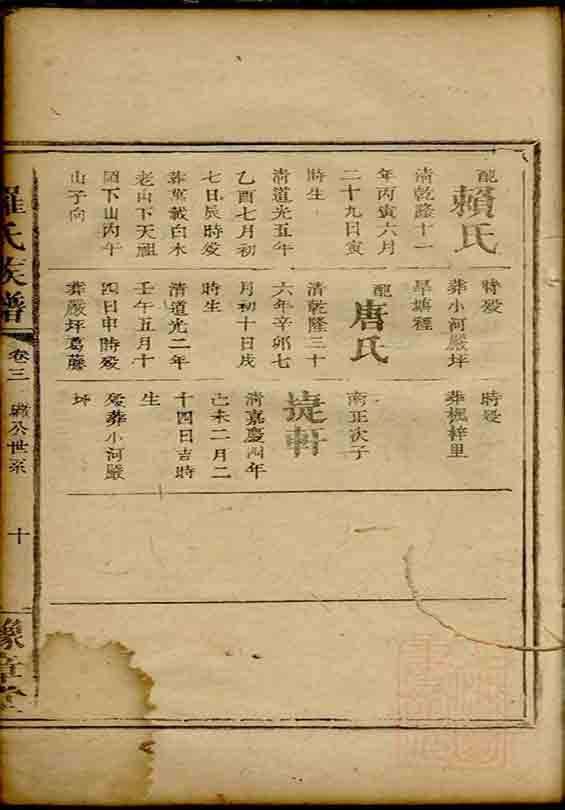 配
賴氏
清乾隆十一
年丙寅六月
二十九日寅
時生
清道光五年
乙酉七月初
七日辰時歿
葬黨裁白木
老山下天祖
下山丙午
山子向
時歿
葬小河嚴坪
旱填裡
配
唐氏
清乾隆三十
六年辛卯七
月初十日戌
時生
清道光二年
壬午五月十
四日申時歿
葬嚴坪葛藤
時歿
葬楓梓里
南正次子
捷軒
清嘉慶四年
己未二月二
十四日吉時
生
歿葬小河嚴
坪
羅氏族譜
卷三
公世系
十
豫章堂